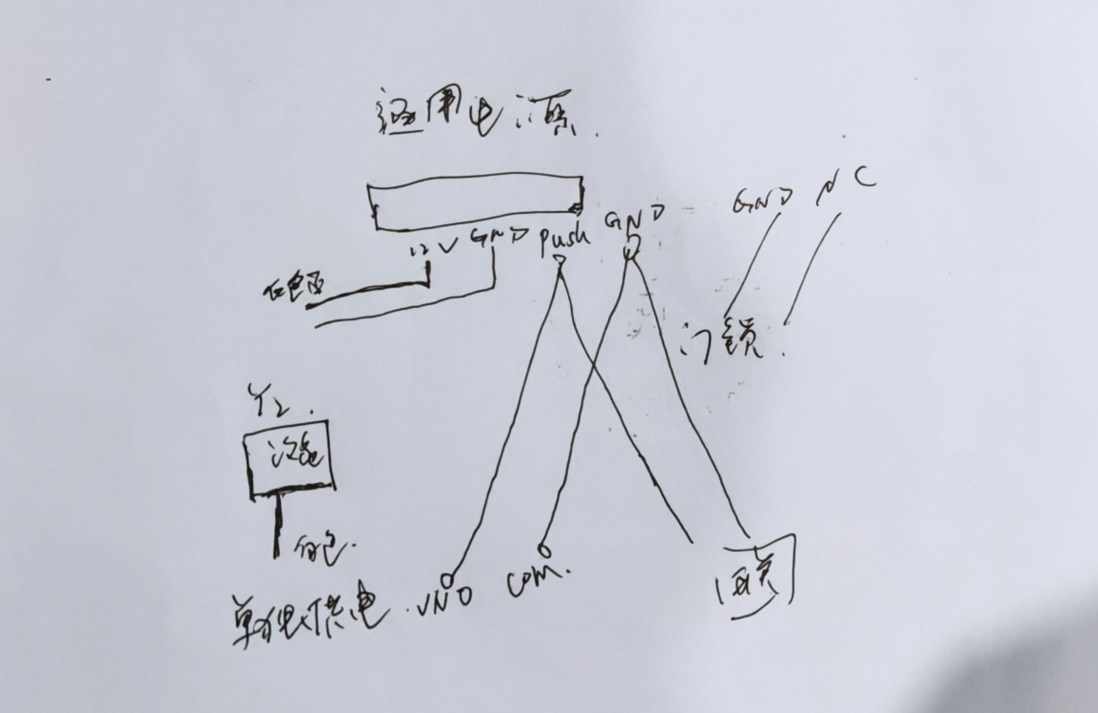 通用电源.
12V GND push GND
GND NC
门锁.
Y2.
设备
白色.
单独供电 NO COM.